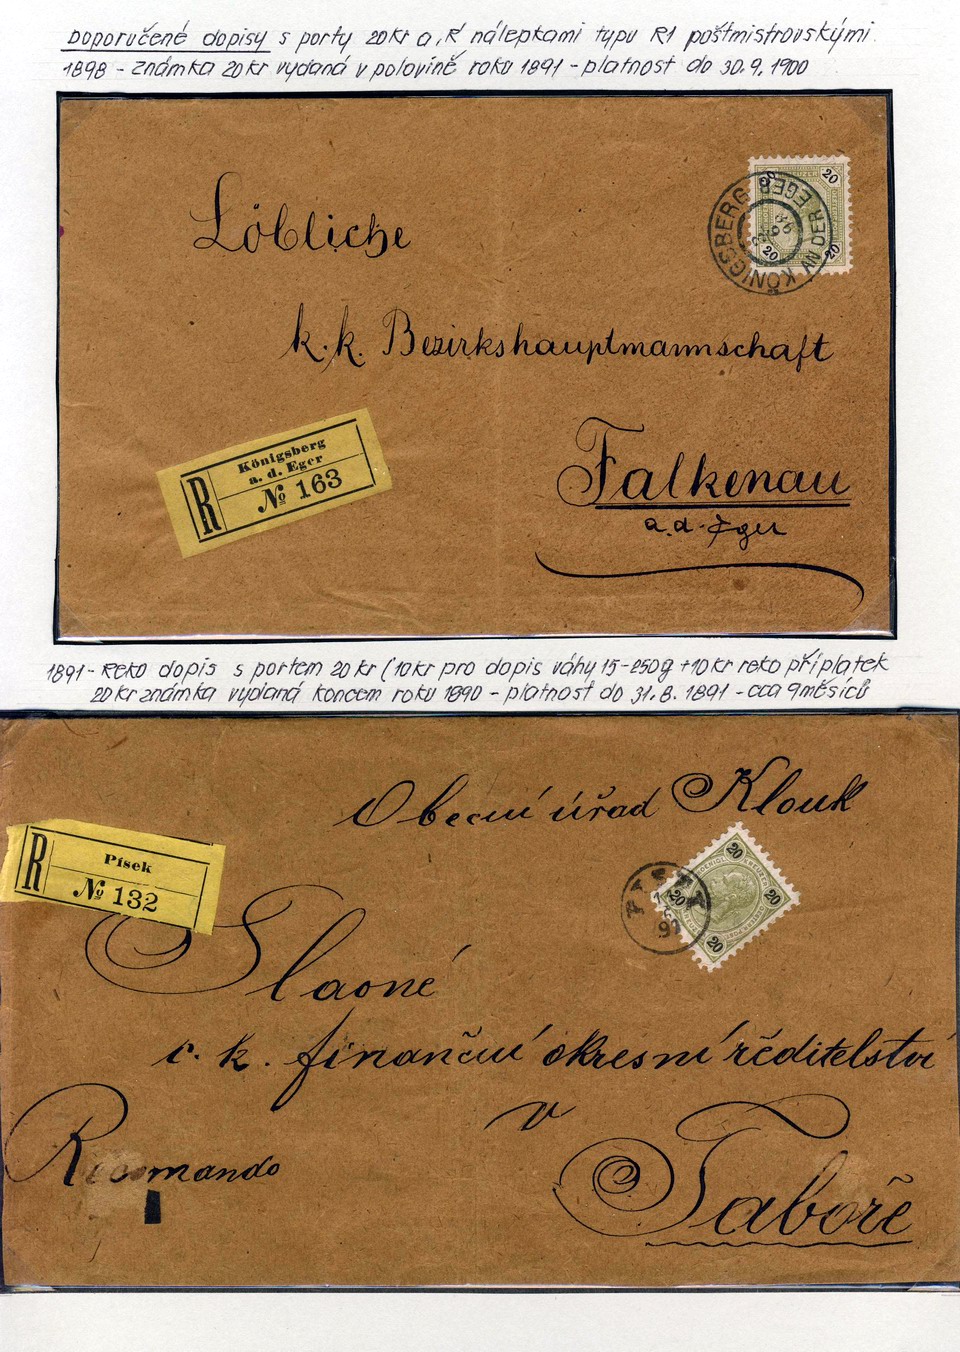 Doporučené dopisy s porty 20kr a „R“ nálepkami typu R1 poštmistrovskými.
1898 - známka 20kr vydaná v polovině roku 1891 - platnost do 30.9.1900
20
KÖNIGSBERG AN DER EGER
20
20
Löbliche
k. k. Bezirkshauptmannschaft
Falkenau
a. d. Eger
R
Königsberg
a. d. Eger
№ 163
1891 - Reko dopis s portem 20kr (10kr pro dopis váhy 15-250g +10kr reko příplatek
20kr známka vydaná koncem roku 1890 - platnost do 31.8.1891 - cca 9měsíců
Obecní úřad Klouk
R
Písek
№ 132
20
20
20
20
91
Slavné
c. k. finanční okresní ředitelství
v
Recomando
Taboře